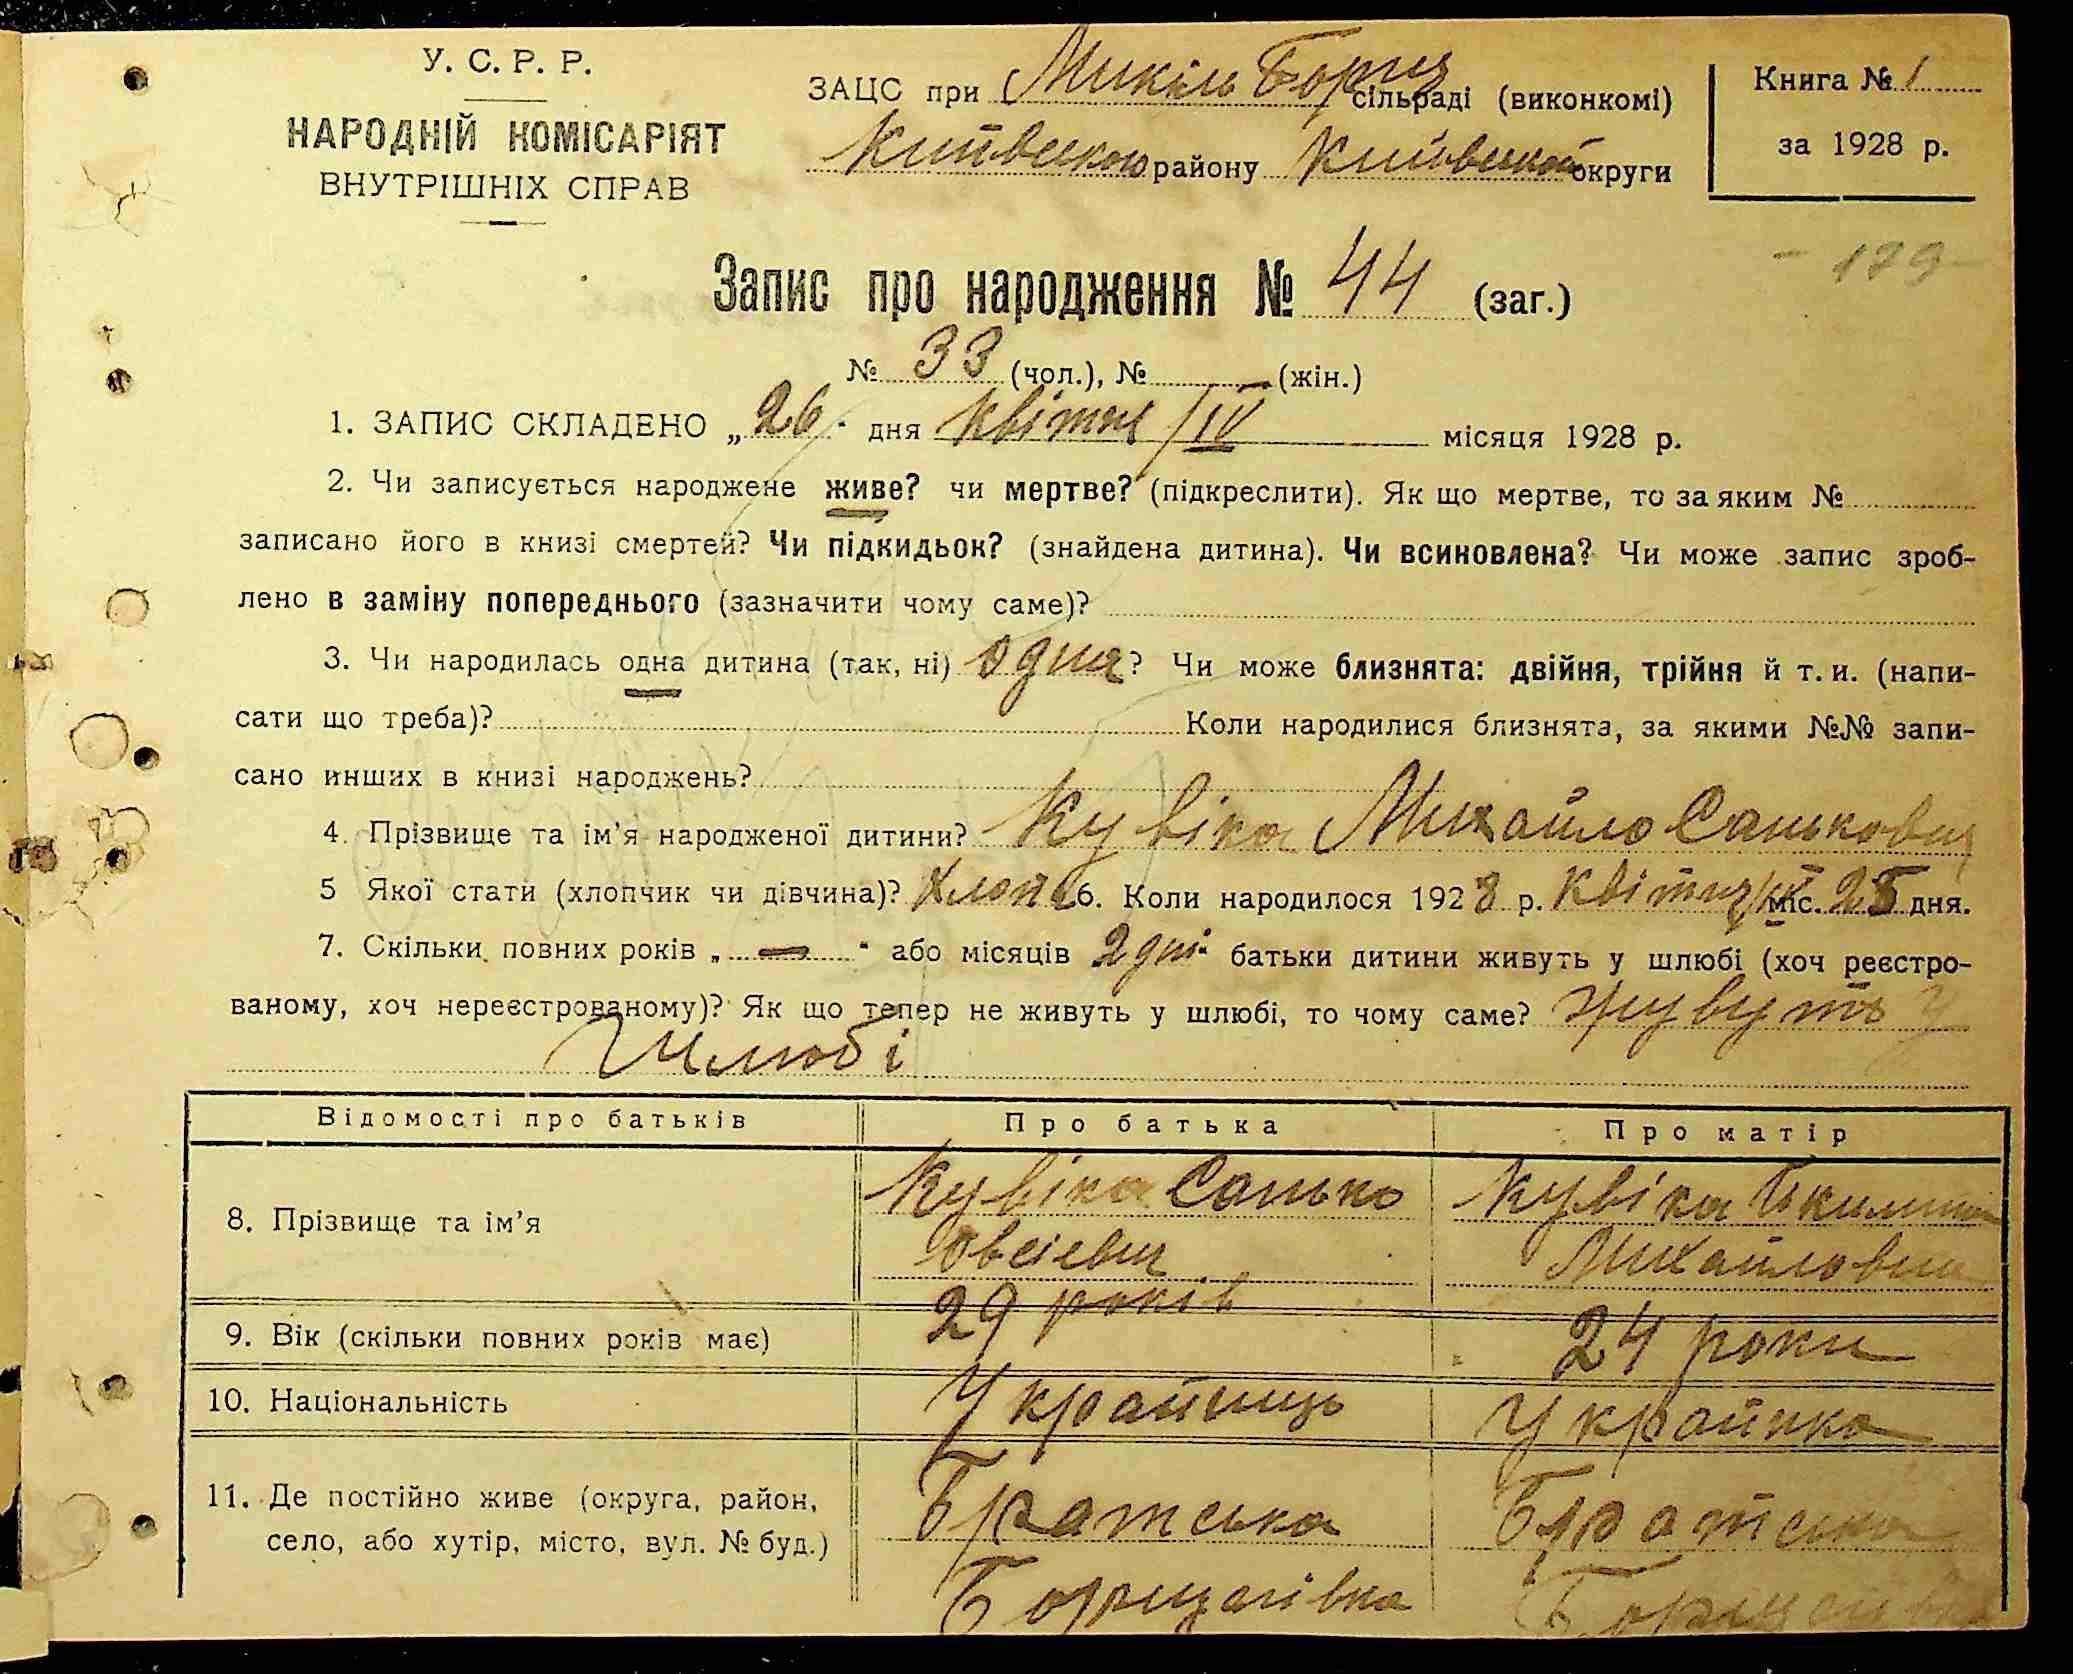 У. С. Р. Р.
НАРОДНІЙ КОМІСАРІЯТ
ВНУТРІШНІХ СПРАВ
ЗАЦС при Микіль Борщ сільраді (виконкомі)
Київського району Київської округи
Книга № 1
за 1928 р.
Запис про народження № 44 (заг.)
- 179 -
№ 33 (чол.), № — (жін.)
1. ЗАПИС СКЛАДЕНО „26" дня квітня /IV місяця 1928 р.
2. Чи записується народжене живе? чи мертве? (підкреслити). Як що мертве, то за яким №
записано його в книзі смертей? Чи підкидьок? (знайдена дитина). Чи всиновлена? Чи може запис зроб-
лено в заміну попереднього (зазначити чому саме)?
3. Чи народилась одна дитина (так, ні) одна? Чи може близнята: двійня, трійня й т. и. (напи-
сати що треба)? Коли народилися близнята, за якими №№ запи-
сано инших в книзі народжень?
4. Прізвище та ім'я народженої дитини? Кувіка Михайло Санькович
5 Якої стати (хлопчик чи дівчина)? хлоп 6. Коли народилося 1928 р. квітня міс. 25 дня.
7. Скільки повних років „—" або місяців 2 дні батьки дитини живуть у шлюбі (хоч реєстро-
ваному, хоч нереєстрованому)? Як що тепер не живуть у шлюбі, то чому саме? живуть у
шлюбі
Відомості про батьків Про батька Про матір
8. Прізвище та ім'я Кувіка Санько Кувіка
Овсієвич Михайловна
9. Вік (скільки повних років має) 29 років 24 роки
10. Національність Українець Українка
11. Де постійно живе (округа, район, Братська Братська
село, або хутір, місто, вул. № буд.) Борщагівка Борщагівка